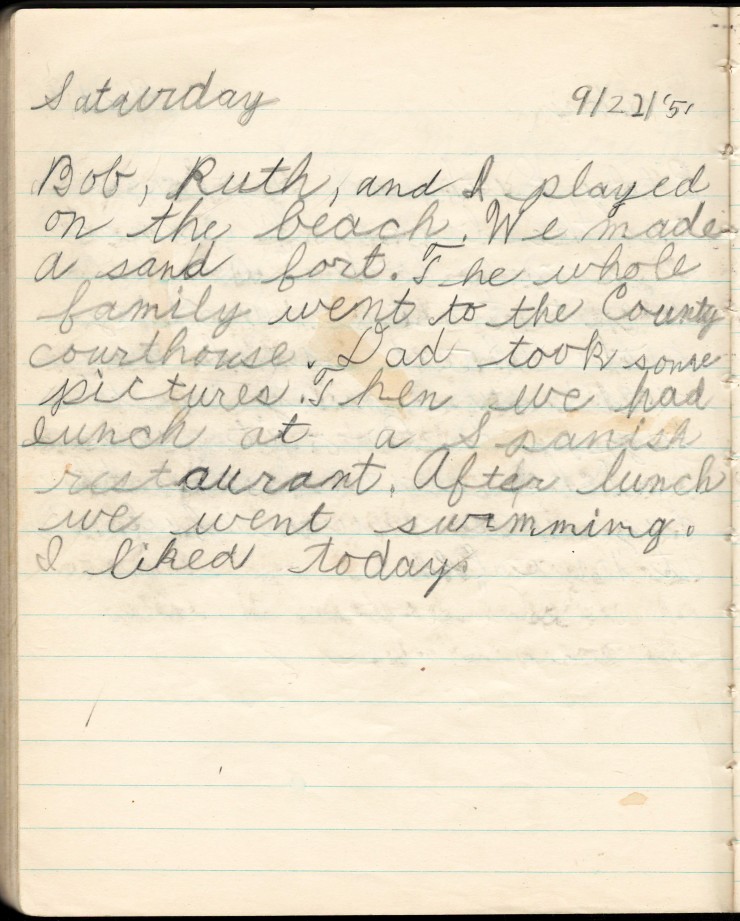 Saturday 9/22/'51
Bob, Ruth, and I played
on the beach. We made
a sand fort. The whole
family went to the County
courthouse. Dad took some
pictures. Then we had
lunch at a Spanish
restaurant. After lunch
we went swimming.
I liked today.